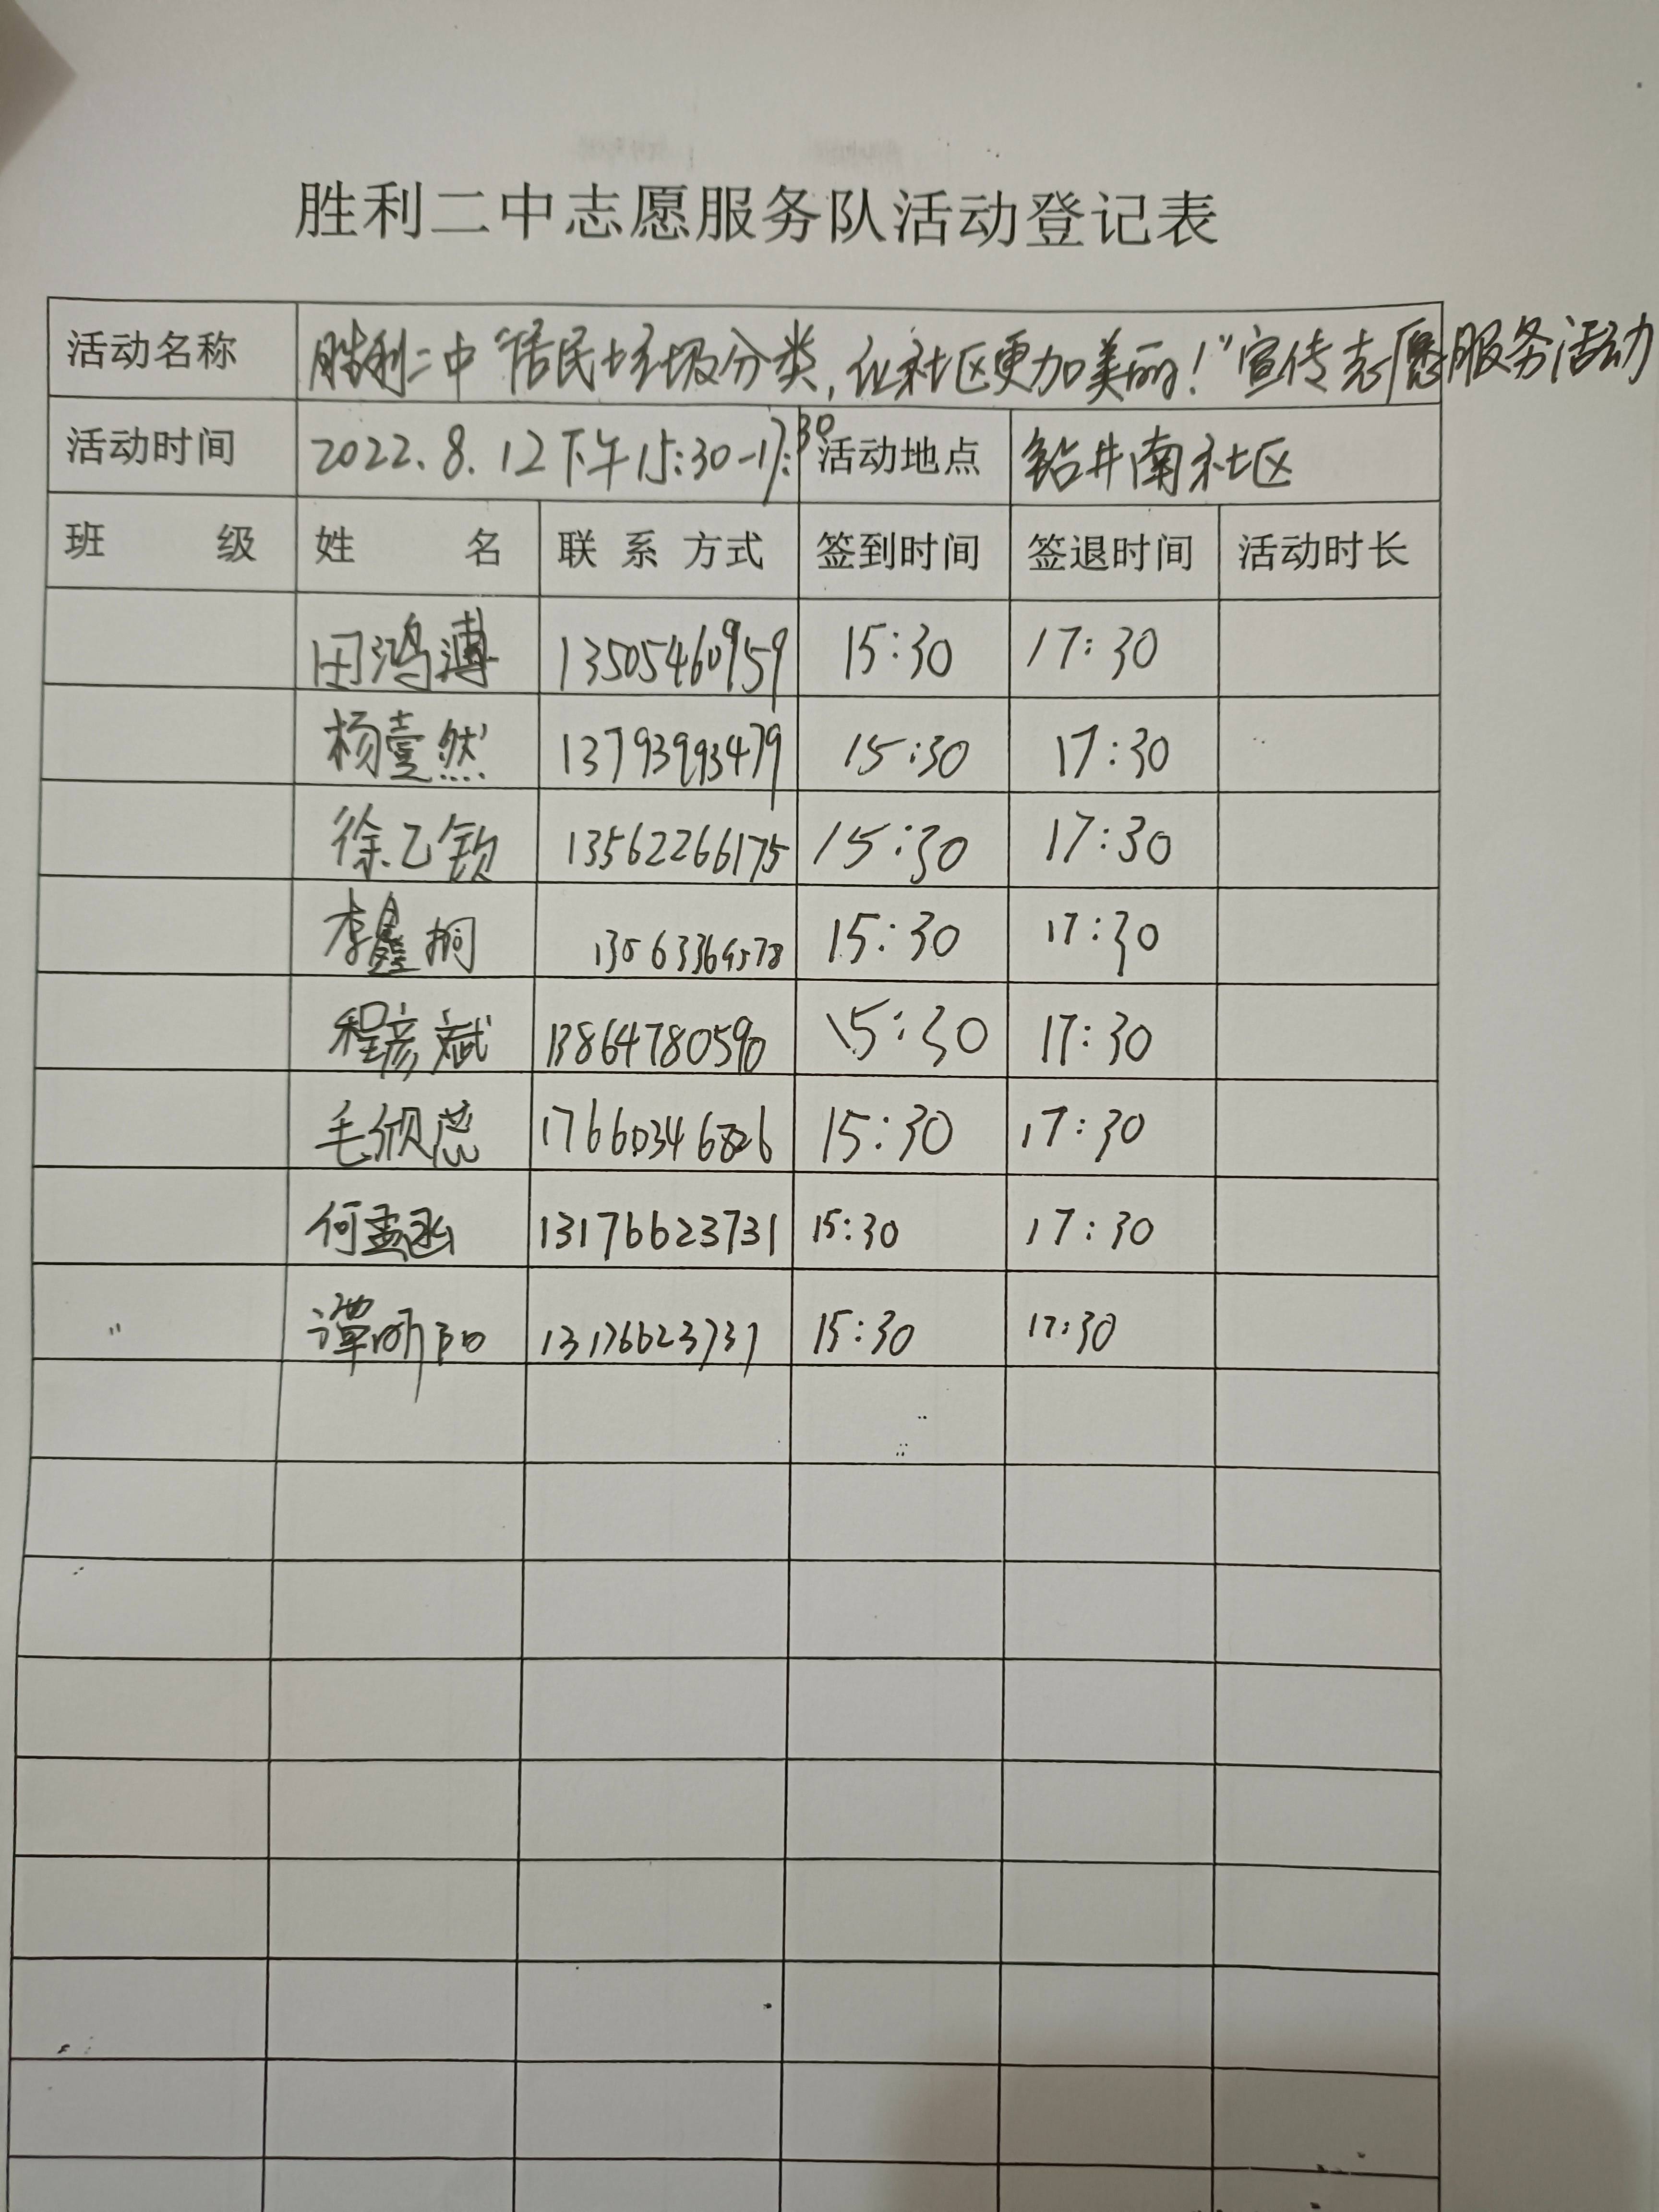 胜利二中志愿服务队活动登记表
活动名称 胜利二中“居民垃圾分类,让社区更加美丽!”宣传志愿服务活动
活动时间 2022.8.12下午15:30-17:30 活动地点 钻井南社区
班 级 姓 名 联系方式 签到时间 签退时间 活动时长
田鸿溥 13505460959 15:30 17:30
杨壹然 13793993479 15:30 17:30
徐乙钦 13562266175 15:30 17:30
李鑫桐 15:30 17:30
程彦斌 13864780590 15:30 17:30
毛欣蕊 15:30 17:30
何孟函 13176623731 15:30 17:30
谭昕阳 13176623731 15:30 17:30